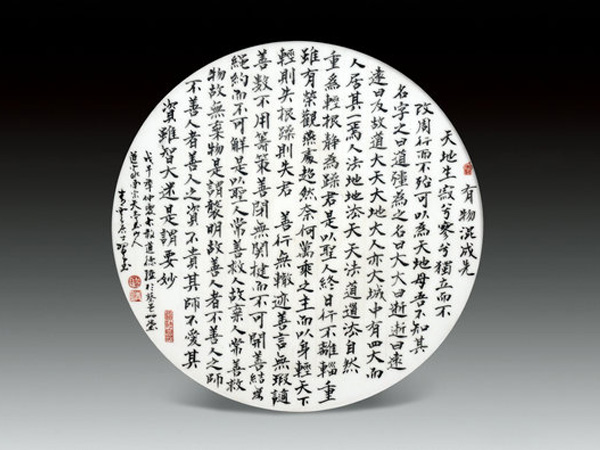 有物混成先
天地生寂兮寥兮獨立而不
改周行而不殆可以為天地母吾不知其
名字之曰道強為之名曰大大曰逝逝曰遠
遠曰反故道大天大地大人亦大域中有四大而
人居其一焉人法地地法天天法道道法自然
重為輕根靜為躁君是以聖人終日行不離輜重
雖有榮觀燕處超然奈何萬乘之主而以身輕天下
輕則失根躁則失君 善行無轍迹善言無瑕讁
善數不用籌策善閉無關楗而不可開善結無
繩約而不可解是以聖人常善救人故棄人常善救
物故無棄物是謂襲明故善人者不善人之師
不善人者善人之資不貴其師不愛其
資雖智大迷是謂要妙